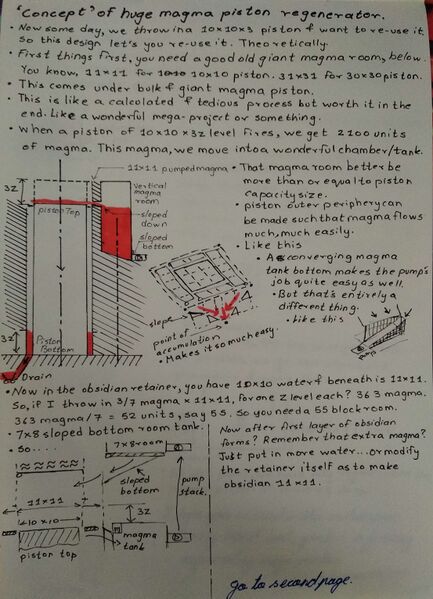 'Concept' of huge magma piston regenerator.
• Now some day, we throw in a 10x10x3 piston & want to re-use it.
So this design let's you re-use it. Theoretically.
• First things first, you need a good old giant magma room, below.
You know, 11x11 for 10x10 piston. 31x31 for 30x30 piston.
• This comes under bulk & giant magma piston.
• This is like a calculated & tedious process but worth it in the
end. Like a wonderful mega-project or something.
• When a piston of 10x10x3z level fires, we get 2100 units
of magma. This magma, we move into a wonderful chamber/tank.
11x11 pumped magma
3Z
piston Top
vertical
magma
room
sloped
down
sloped
bottom
3Z
Piston
Bottom
Drain
• That magma room better be
more than or equal to piston
capacity size.
• piston outer periphery can
be made such that magma flows
much, much easily.
• Like this
• A converging magma
tank bottom makes the pump's
job quite easy as well.
• But that's entirely a
different thing.
• Like this
pump
slope
point of
accumulation
• Makes it so much easy.
• Now in the obsidian retainer, you have 10x10 water & beneath is 11x11.
So, if I throw in 3/7 magma x 11x11, for one z level each? 363 magma.
363 magma/7 = 52 units, say 55. So you need a 55 block room.
• 7x8 sloped bottom room tank.
• So....
7x8 room
sloped
bottom
pump
stack.
11x11
10x10
3Z
piston top
magma
tank
Now after first layer of obsidian
forms? Remember that extra magma?
Just put in more water... or modify
the retainer itself as to make
obsidian 11x11.
go to second page.